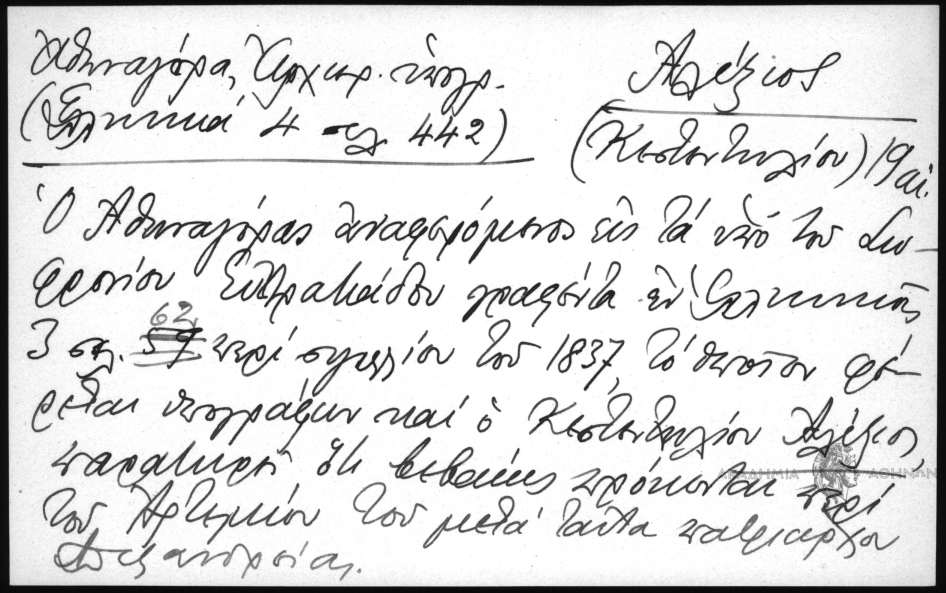 Ἀθηναγόρα, Ἀρχιερ. ὑπογρ.
(Ἑλληνικά 4 σελ. 442)
Ἀλέξιος
(Κεστεντηλίου) 19 αἰ.
Ὁ Ἀθηναγόρας ἀναφερόμενος εἰς τά ὑπό τοῦ Σω-
φρονίου Εὐστρατιάδου γραφέντα ἐν Ἑλληνικοῖς
3 σελ. 62, περί σιγιλλίου τοῦ 1837, τό ὁποῖον φέ-
ρεται ὑπογράφων καί ὁ Κεστεντηλίου Ἀλέξιος,
παρατηρεῖ ὅτι βεβαίως πρόκειται περί
τοῦ Ἀρτεμίου τοῦ μετά ταῦτα πατριάρχου
Ἀλεξανδρείας.
ΑΚΑΔΗΜΙΑ ΑΘΗΝΩΝ